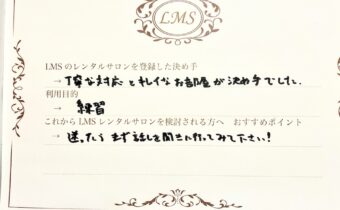 LMS
LMSのレンタルサロンを登録した決め手
→ 丁寧な対応とキレイなお部屋が決め手でした。
利用目的
→ 練習
これからLMSレンタルサロンを検討される方へ おすすめポイント
→ 迷ったらまず話しを聞きに行ってみて下さい!